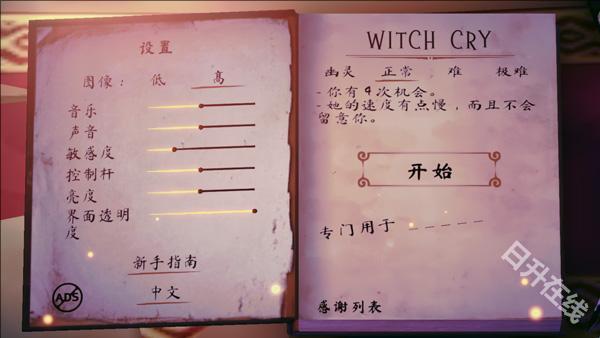 设置
图像： 低 高
音乐
声音
敏感度
控制杆
亮度
界面透明
度
新手指南
中文
ADS
WITCH CRY
幽灵 正常 难 极难
-你有4次机会。
-她的速度有点慢，而且不会
留意你。
开始
专门用于 _ _ _ _ _
感谢列表
日升在线